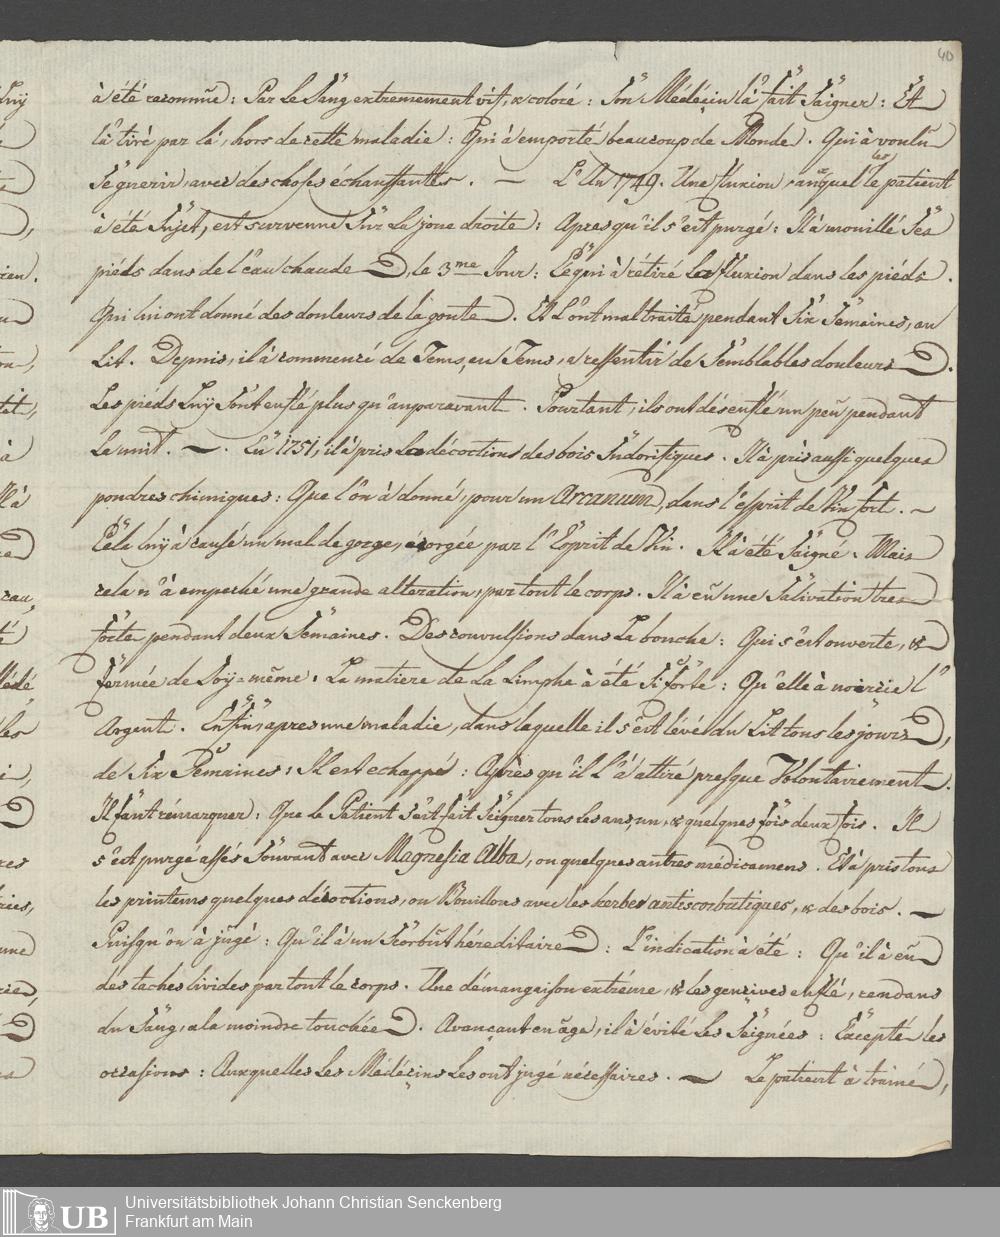 40
à été reconnüe: Par Le Sang extremement vif, & coloré: Son Médeçin l'à fait Saigner: Et
l'à tiré par là, hors de cette maladie: Qui à emporté beaucoup de Monde. Qui à voulû
Se guerir, avec des choses échauffantes. — L'An 1749. Une fluxion, auquel le patient
à été Sujet, est survenue Sur La joue droite: Apres qu'il s'est purgé: Il à mouillé Ses
piéds dans de l'eau chaude, le 3me Jour: Ce qui à rétiré La fluxion dans les pieds.
Qui lui ont donné des douleurs de la goute. Et L'ont maltraité pendant Six Semaines, au
Lit. Depuis, il à commencé de Tems, en Tems, a ressentir de Semblables douleurs.
Les piéds Luy Sont enflé plus qu'auparavant. Pourtant, ils ont désenflé un peu pendant
La nuit. — . En 1751, il à pris La décoctions des bois Sudorifiques. Il à pris aussi quelques
poudres chimiques: Que l'on à donné, pour un Arcanum, dans l'esprit de Vin fort. —
Cela luy à causé un mal de gorge, écorgée par l'Esprit de Vin. Il à été Saigné. Mais
cela n'à empeché une grande alteration, par tout le corps. Il à eû une Salivation tres
forte, pendant deux Semaines. Des convulsions dans La bouche: Qui s'est ouverte, &
fermée de Soy-même. La matiere de La Limphe à été Si forte: Qu'elle à noircie l'
Argent. Enfin, apres une maladie, dans laquelle il s'est lévé du Lit tous les jours,
de Six Semaines: Il est echappé: Après qu'il L'à attiré presque Volontairement.
Il faut rémarquer: Que Le Patient S'est fait Seigner tous les ans, un, & quelques fois deux fois. Il
s'est purgé assés Souvant avec Magnesia Alba, ou quelques autres médicamens. Et à pris tous
les printems quelques décoctions, ou Bouillons avec les herbes antiscorbutiques, & des bois. —
Puisqu'on à jugé: Qu'il à un Scorbût héreditaire: L'indication à été: Qu'il à eû
des taches livides par tout le corps. Une démangaison extréme, & les gencives enflé, rendans
du Sang, a la moindre touchée. Avançant en âge, il à évité Les Seignées: Excepté les
occasions: Auxquelles Les Médéçins Les ont jugé nécessaires. — Le patient à trainé,
Universitätsbibliothek Johann Christian Senckenberg
Frankfurt am Main
UB